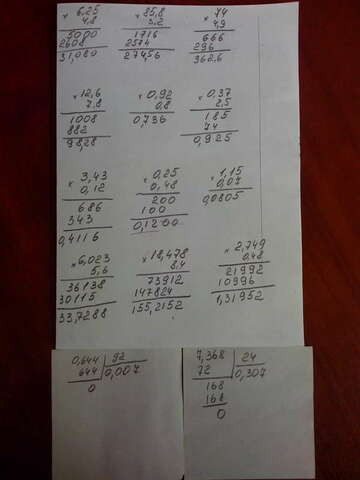 × 6,25 × 85,8 × 74
4,8 3,2 4,9
5000 1716 666
2608 2574 296
31,080 274,56 362,6
× 12,6 × 0,92 × 0,37
7,8 0,8 2,5
1008 0,736 185
882 74
98,28 0,925
× 3,43 × 0,25 × 1,15
0,12 0,48 0,07
686 200 0,0805
343 100
0,4116 0,1200
× 6,023 × 18,478 × 2,749
5,6 8,4 0,48
36138 73912 21992
30115 147824 10996
33,7288 155,2152 1,31952
0,644 92 7,368 24
644 0,007 72 0,307
0 168
168
0